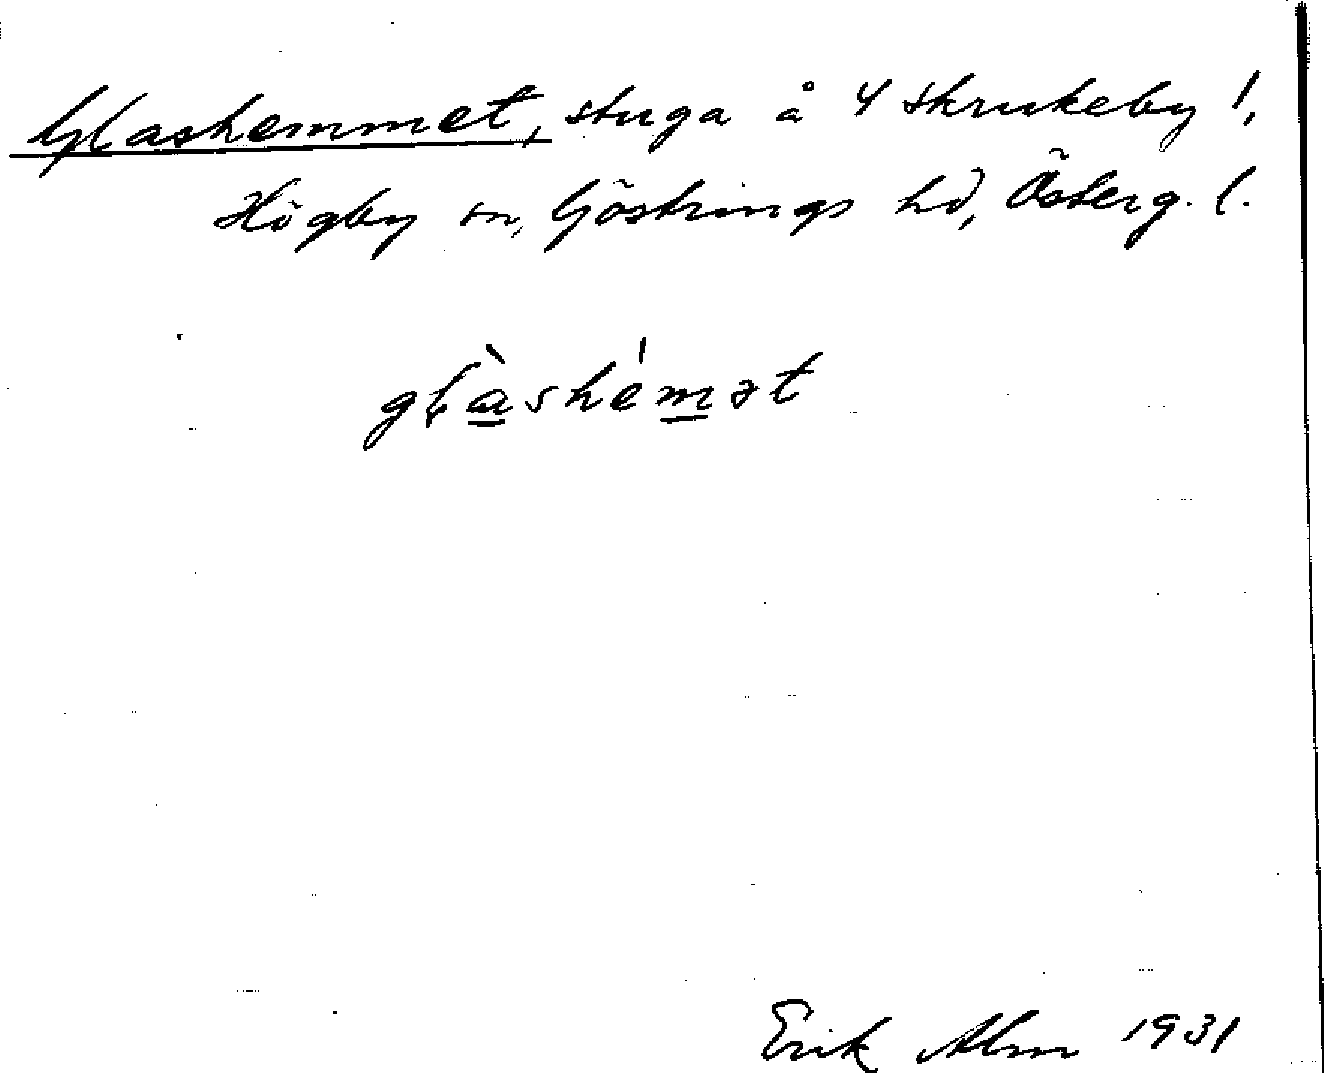 Glashemmet, stuga å 4 Skrukeby 1,
Högby sn, Göstrings hd, Österg. l.
glàshémət
Erik Alm 1931